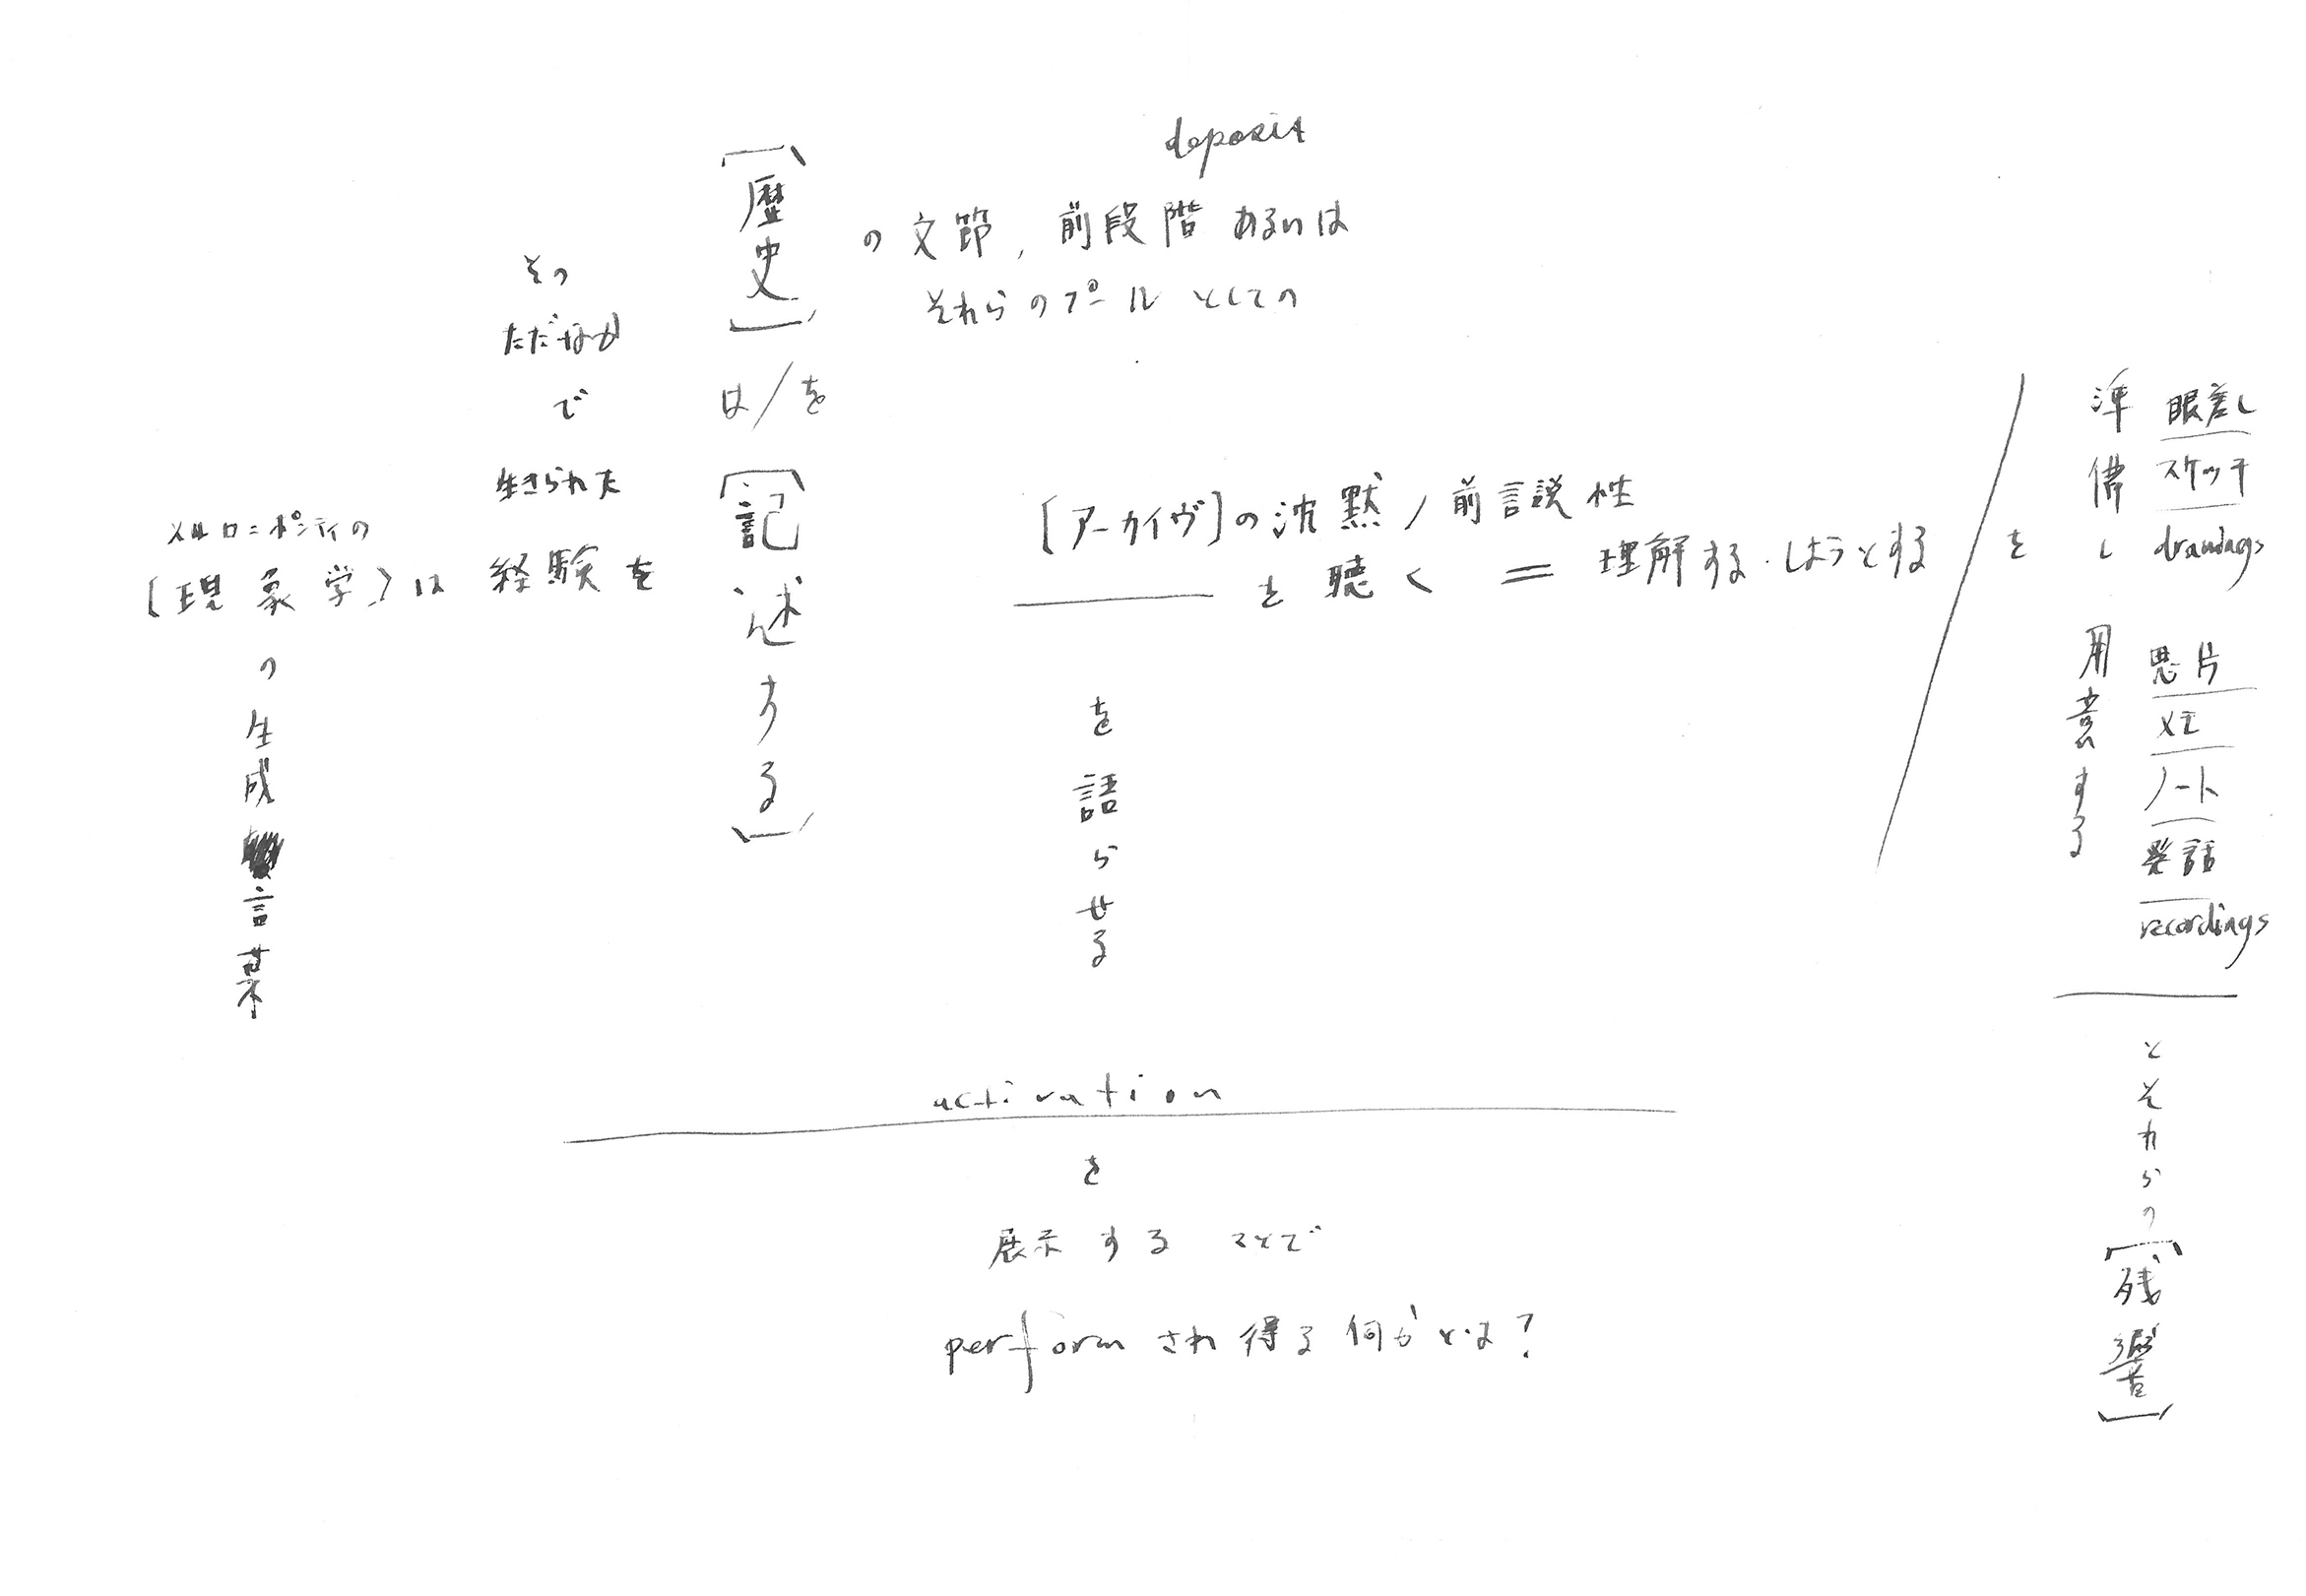 deposit
[歴史]
の文節, 前段階 あるいは
それらのプール としての
は/を
[記述する]
その
ただなか
で
生きられた
経験を
メルロ=ポンティの
[現象学]は
の生成
言葉
[アーカイヴ]の沈黙/前言説性
を聴く = 理解する・しようとする
を語らせる
を
準備し
用意する
眼差し
スケッチ
drawings
思片
メモ
ノート
発話
recordings
とそれらの
[残響]
activation
を
展示する ことで
performされ得る何かとは?